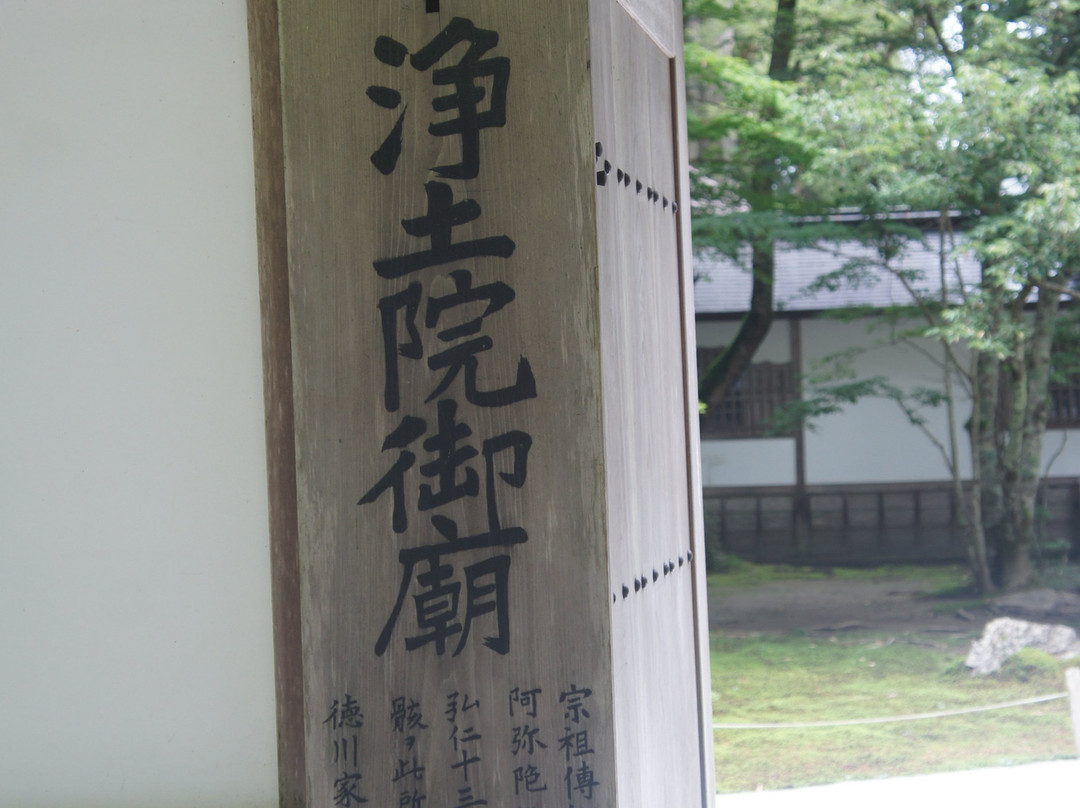 浄土院御廟
宗祖傳
阿弥陀
弘仁十三
骸ヲ此所
徳川家